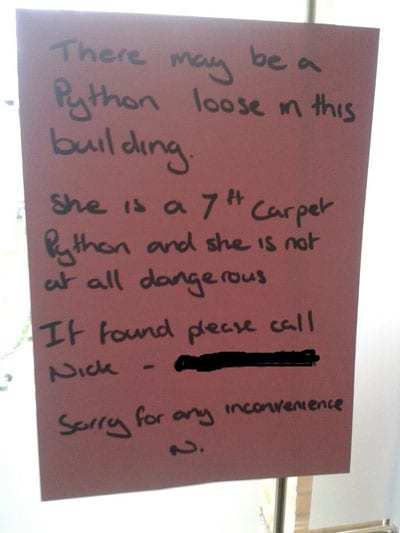 There may be a
Python loose in this
building.
She is a 7ft Carpet
Python and she is not
at all dangerous
If found please call
Nick -
Sorry for any inconvenience
N.